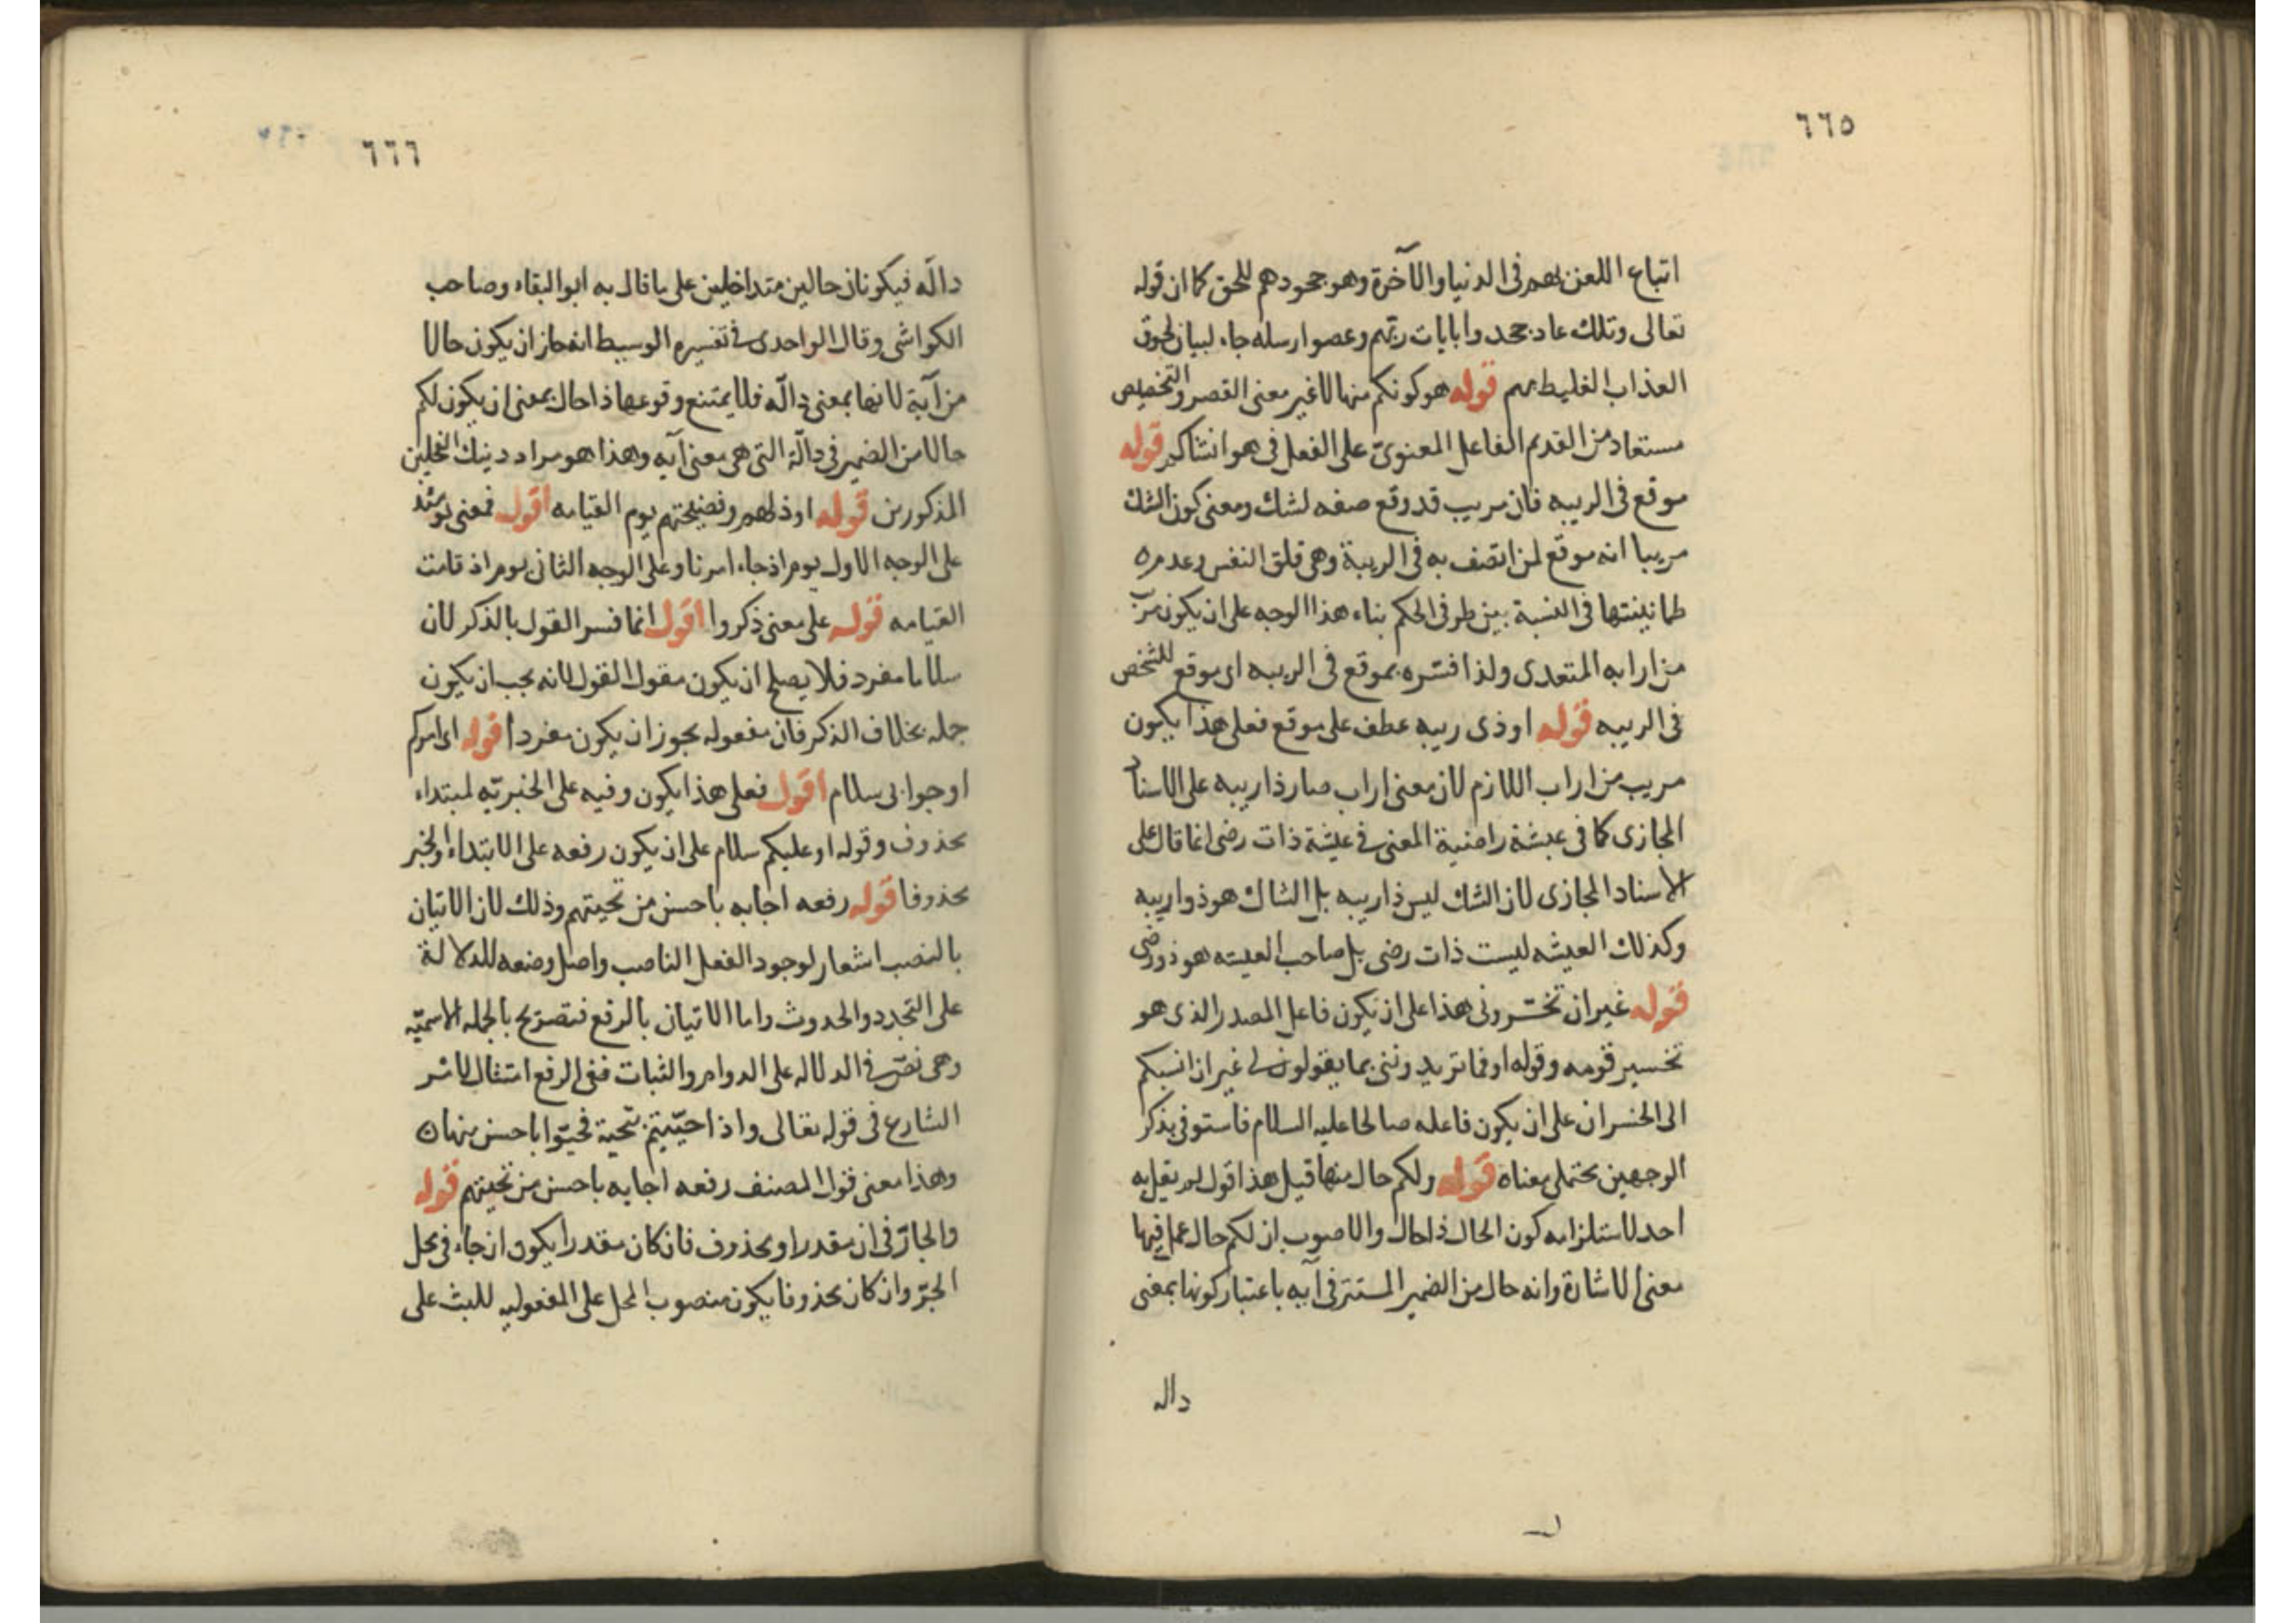 ٦٦٥
اتباع اللعن بهم فى الدنيا والآخرة وهو جحودهم للحق كما ان قوله
تعالى وتلك عاد جحدوا بايات ربهم وعصوا رسله جاء لبيان لحوق
العذاب الغليظ بهم قوله هو كونكم منها لا غير معنى القصر والتخصيص
مستفاد من القديم الفاعل المعنوىّ على الفعل فى هو انشاكم قوله
موقع فى الريبه فان مريب قد وقع صفه لشك ومعنى كون الشك
مريبا انه موقع لمن اتصف به فى الريبة وهى قلق النفس وعدم
طمانينتها فى النسبة بين طرفى الحكم بناء هذا الوجه على ان يكون مريب
من ارابه المتعدى ولذا فسّره بموقع فى الريبه اى موقع للشخص
فى الريبه قوله او ذى ريبه عطف على موقع فعلى هذا يكون
مريب من اراب اللازم لان معنى اراب صار ذا ريبه على الاسناد
المجازى كما فى عيشة راضية المعنى فى عيشة ذات رضى انما قال على
الاسناد المجازى لان الشك ليس ذا ريبه بل الشاك هو ذو اريبه
وكذلك العيشه ليست ذات رضى بل صاحب العيشه هو ذو رضى
قوله غير ان تخسّرونى هذا على ان يكون فاعل المصدر الذى هو
تخسير قومه وقوله او فما تزيدوننى بما يقولون لى غير ان انسبكم
الى الخسران على ان يكون فاعله صالحا عليه السلام فاستوفى بذكر
الوجهين محتملى معناه قوله ولكم حال منها قيل هذا قول لم يقل به
احد لاستلزامه كون الحال ذا حال والاصوب ان لكم حال عمل فيها
معنى الاشارة وانه حال من الضمير المستتر فى آيه باعتبار كونها بمعنى
داله
٦٦٦
دالّه فيكونان حالين متداخلين على ما قال به ابو البقاء وصاحب
الكواشى وقال الواحدى فى تفسيره الوسيط انه جاز ان يكون حالا
من آية لانها بمعنى دالّه فلا يمتنع وقوعها ذا حال بمعنى ان يكون لكم
حالا من الضمير فى دالّة التى هى معنى آيه وهذا هو مراد دينك الفحلين
المذكورين قوله او ذلهم وفضيحتهم يوم القيامه اقول فمعنى يومئذ
على الوجه الاول يوم اذ جاء امرنا وعلى الوجه الثانى يوم اذ قامت
القيامه قوله على معنى ذكروا اقول انما فسر القول بالذكر لان
سلاما مفرد فلا يصلح ان يكون مقول القول لانه يجب ان يكون
جمله بخلاف الذكر فان مفعوله يجوز ان يكون مفردا قوله اى امركم
او جوابى سلام اقول فعلى هذا يكون رفعه على الخبريّه لمبتداء
محذوف وقوله او عليكم سلام على ان يكون رفعه على الابتداء والخبر
محذوفا قوله رفعه اجابه باحسن من تحيتهم وذلك لان الاتيان
بالنصب اشعار لوجود الفعل الناصب واصل وضعه للدلالة
على التجدد والحدوث واما الاتيان بالرفع فتصريح بالجمله الاسميّه
وهى نصّ فى الدلاله على الدوام والثبات ففى الرفع امتثال لامر
الشارع فى قوله تعالى واذا حيّيتم بتحية فحيّوا باحسن منها
وهذا معنى قول المصنف رفعه اجابه باحسن من تحيتهم قوله
والجارّ فى ان مقدر او محذوف فان كان مقدرا يكون ان جاء فى محل
الجرّ وان كان محذوفا يكون منصوب المحل على المفعوليه للبث على